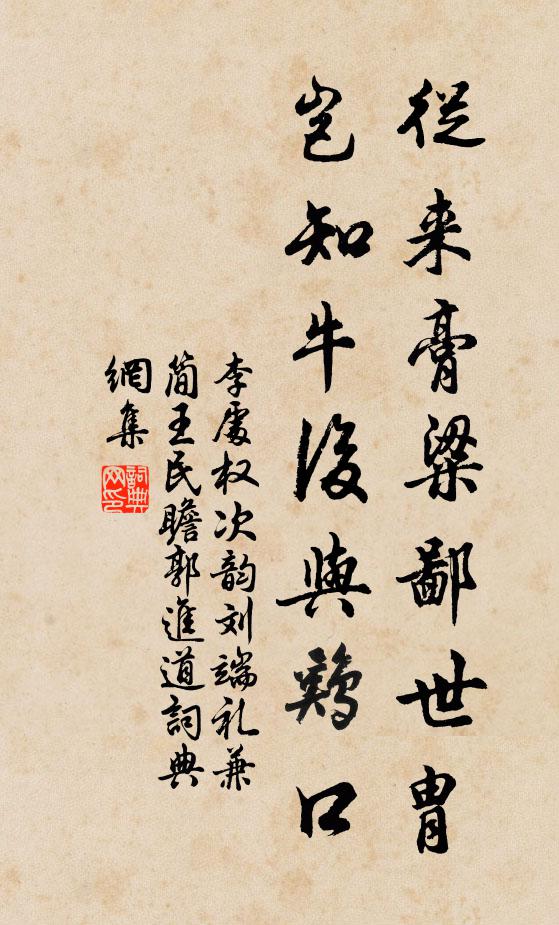 從来膏粱鄙世胄
豈知牛後與鷄口
李處权次韵刘端礼兼
简王民瞻郭進道詞典
網集
詞典网印